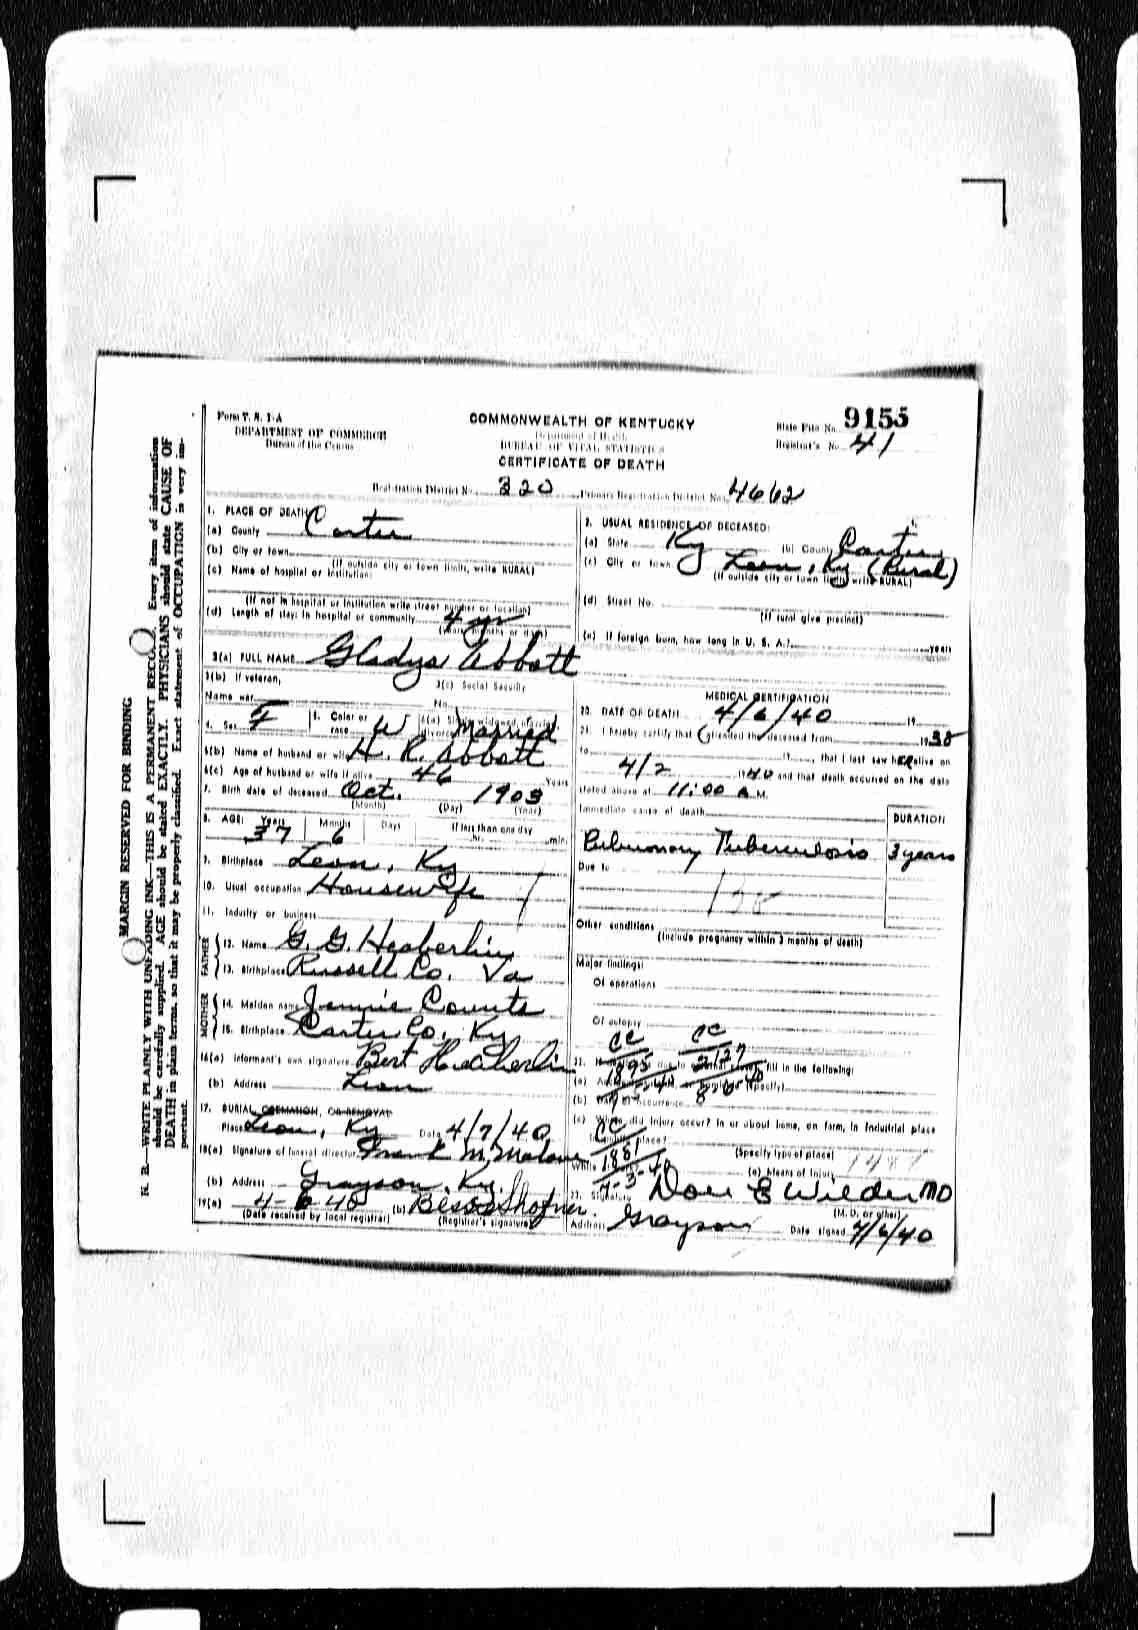 Form V. S. 1-A
DEPARTMENT OF COMMERCE
Bureau of the Census
COMMONWEALTH OF KENTUCKY
Department of Health
BUREAU OF VITAL STATISTICS
CERTIFICATE OF DEATH
State File No. 9155
Registrar's No. 41
Registration District No. 320 Primary Registration District No. 4662
MARGIN RESERVED FOR BINDING
N. B.—WRITE PLAINLY WITH UNFADING INK—THIS IS A PERMANENT RECORD. Every item of information
should be carefully supplied. AGE should be stated EXACTLY. PHYSICIANS should state CAUSE OF
DEATH in plain terms, so that it may be properly classified. Exact statement of OCCUPATION is very im-
portant.
1. PLACE OF DEATH
(a) County Carter
(b) City or town
(If outside city or town limits, write RURAL)
(c) Name of hospital or institution:
(If not in hospital or institution write street number or location)
(d) Length of stay: In hospital or community 4 yr
(Years, months or days)
2. USUAL RESIDENCE OF DECEASED:
(a) State Ky (b) County Carter
(c) City or town Leon, Ky (Rural)
(If outside city or town limits write RURAL)
(d) Street No.
(If rural give precinct)
(e) If foreign born, how long in U. S. A.? years
3(a) FULL NAME Gladys Abbott
3(b) If veteran,
Name war
3(c) Social Security
No.
4. Sex F 5. Color or race W 6(a) Single, widowed, married, divorced Married
6(b) Name of husband or wife H. R. Abbott
6(c) Age of husband or wife if alive 46 Years
7. Birth date of deceased Oct. 1903
(Month) (Day) (Year)
8. AGE: Years 37 Months 6 Days If less than one day hr. min.
9. Birthplace Leon, Ky
10. Usual occupation Housewife
11. Industry or business
FATHER
12. Name G. G. Heaberlin
13. Birthplace Russell Co. Va
MOTHER
14. Maiden name Jennie Counts
15. Birthplace Carter Co. Ky
16(a) Informant's own signature Bert Heaberlin
(b) Address Leon
17. BURIAL, CREMATION, OR REMOVAL
Place Leon, Ky Date 4/7/40
18(a) Signature of funeral director Frank M. Malone
(b) Address Grayson, Ky.
19(a) 4-6-40 (b) Bess Shofner.
(Date received by local registrar) (Registrar's signature)
MEDICAL CERTIFICATION
20. DATE OF DEATH 4/6/40 19
21. I hereby certify that I attended the deceased from 1938
to 19, that I last saw her alive on
4/2 1940 and that death occurred on the date
stated above at 11:00 A M.
Immediate cause of death
DURATION
Pulmonary Tuberculosis 3 years
Due to
Other conditions
(Include pregnancy within 3 months of death)
Major findings:
Of operations
Of autopsy
CC CC
1895 2127
fill in the following:
(specify)
(b) Date of occurrence
(c) Where did injury occur? In or about home, on farm, in industrial place
place?
(Specify type of place)
CC
1881
7-3-40
(e) Means of injury
23. Signature Don E Wilder MD
(M. D. or other)
Address Grayson Date signed 4/6/40